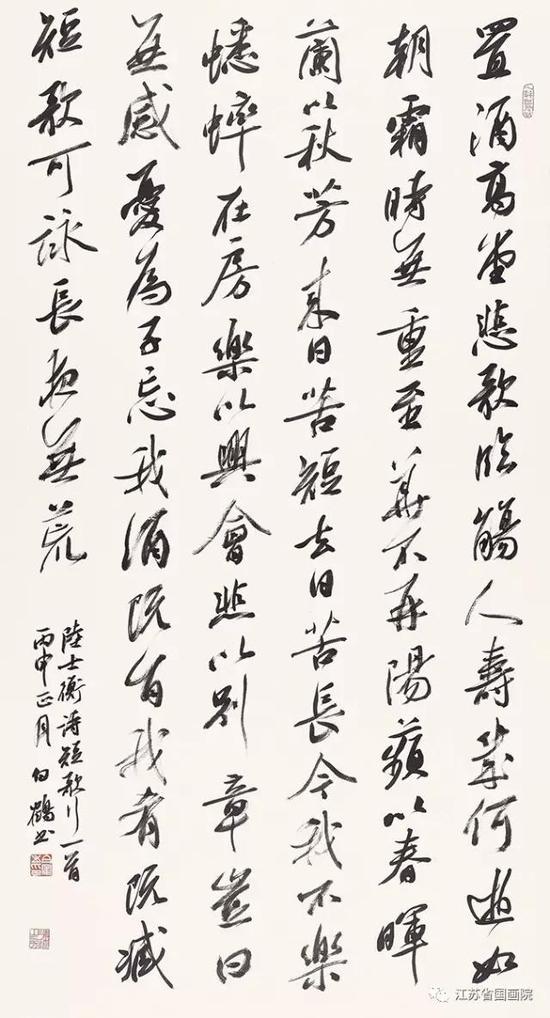 置酒高堂悲歌臨觴人壽幾何逝如
朝霜時無重至華不再陽蘋以春暉
蘭以秋芳來日苦短去日苦長今我不樂
蟋蟀在房樂以興會悲以別章豈曰
無感憂為子忘我酒既有我肴既臧
短歌可詠長夜無荒
陸士衡詩短歌行一首
丙申正月白鶴書
江苏省国画院